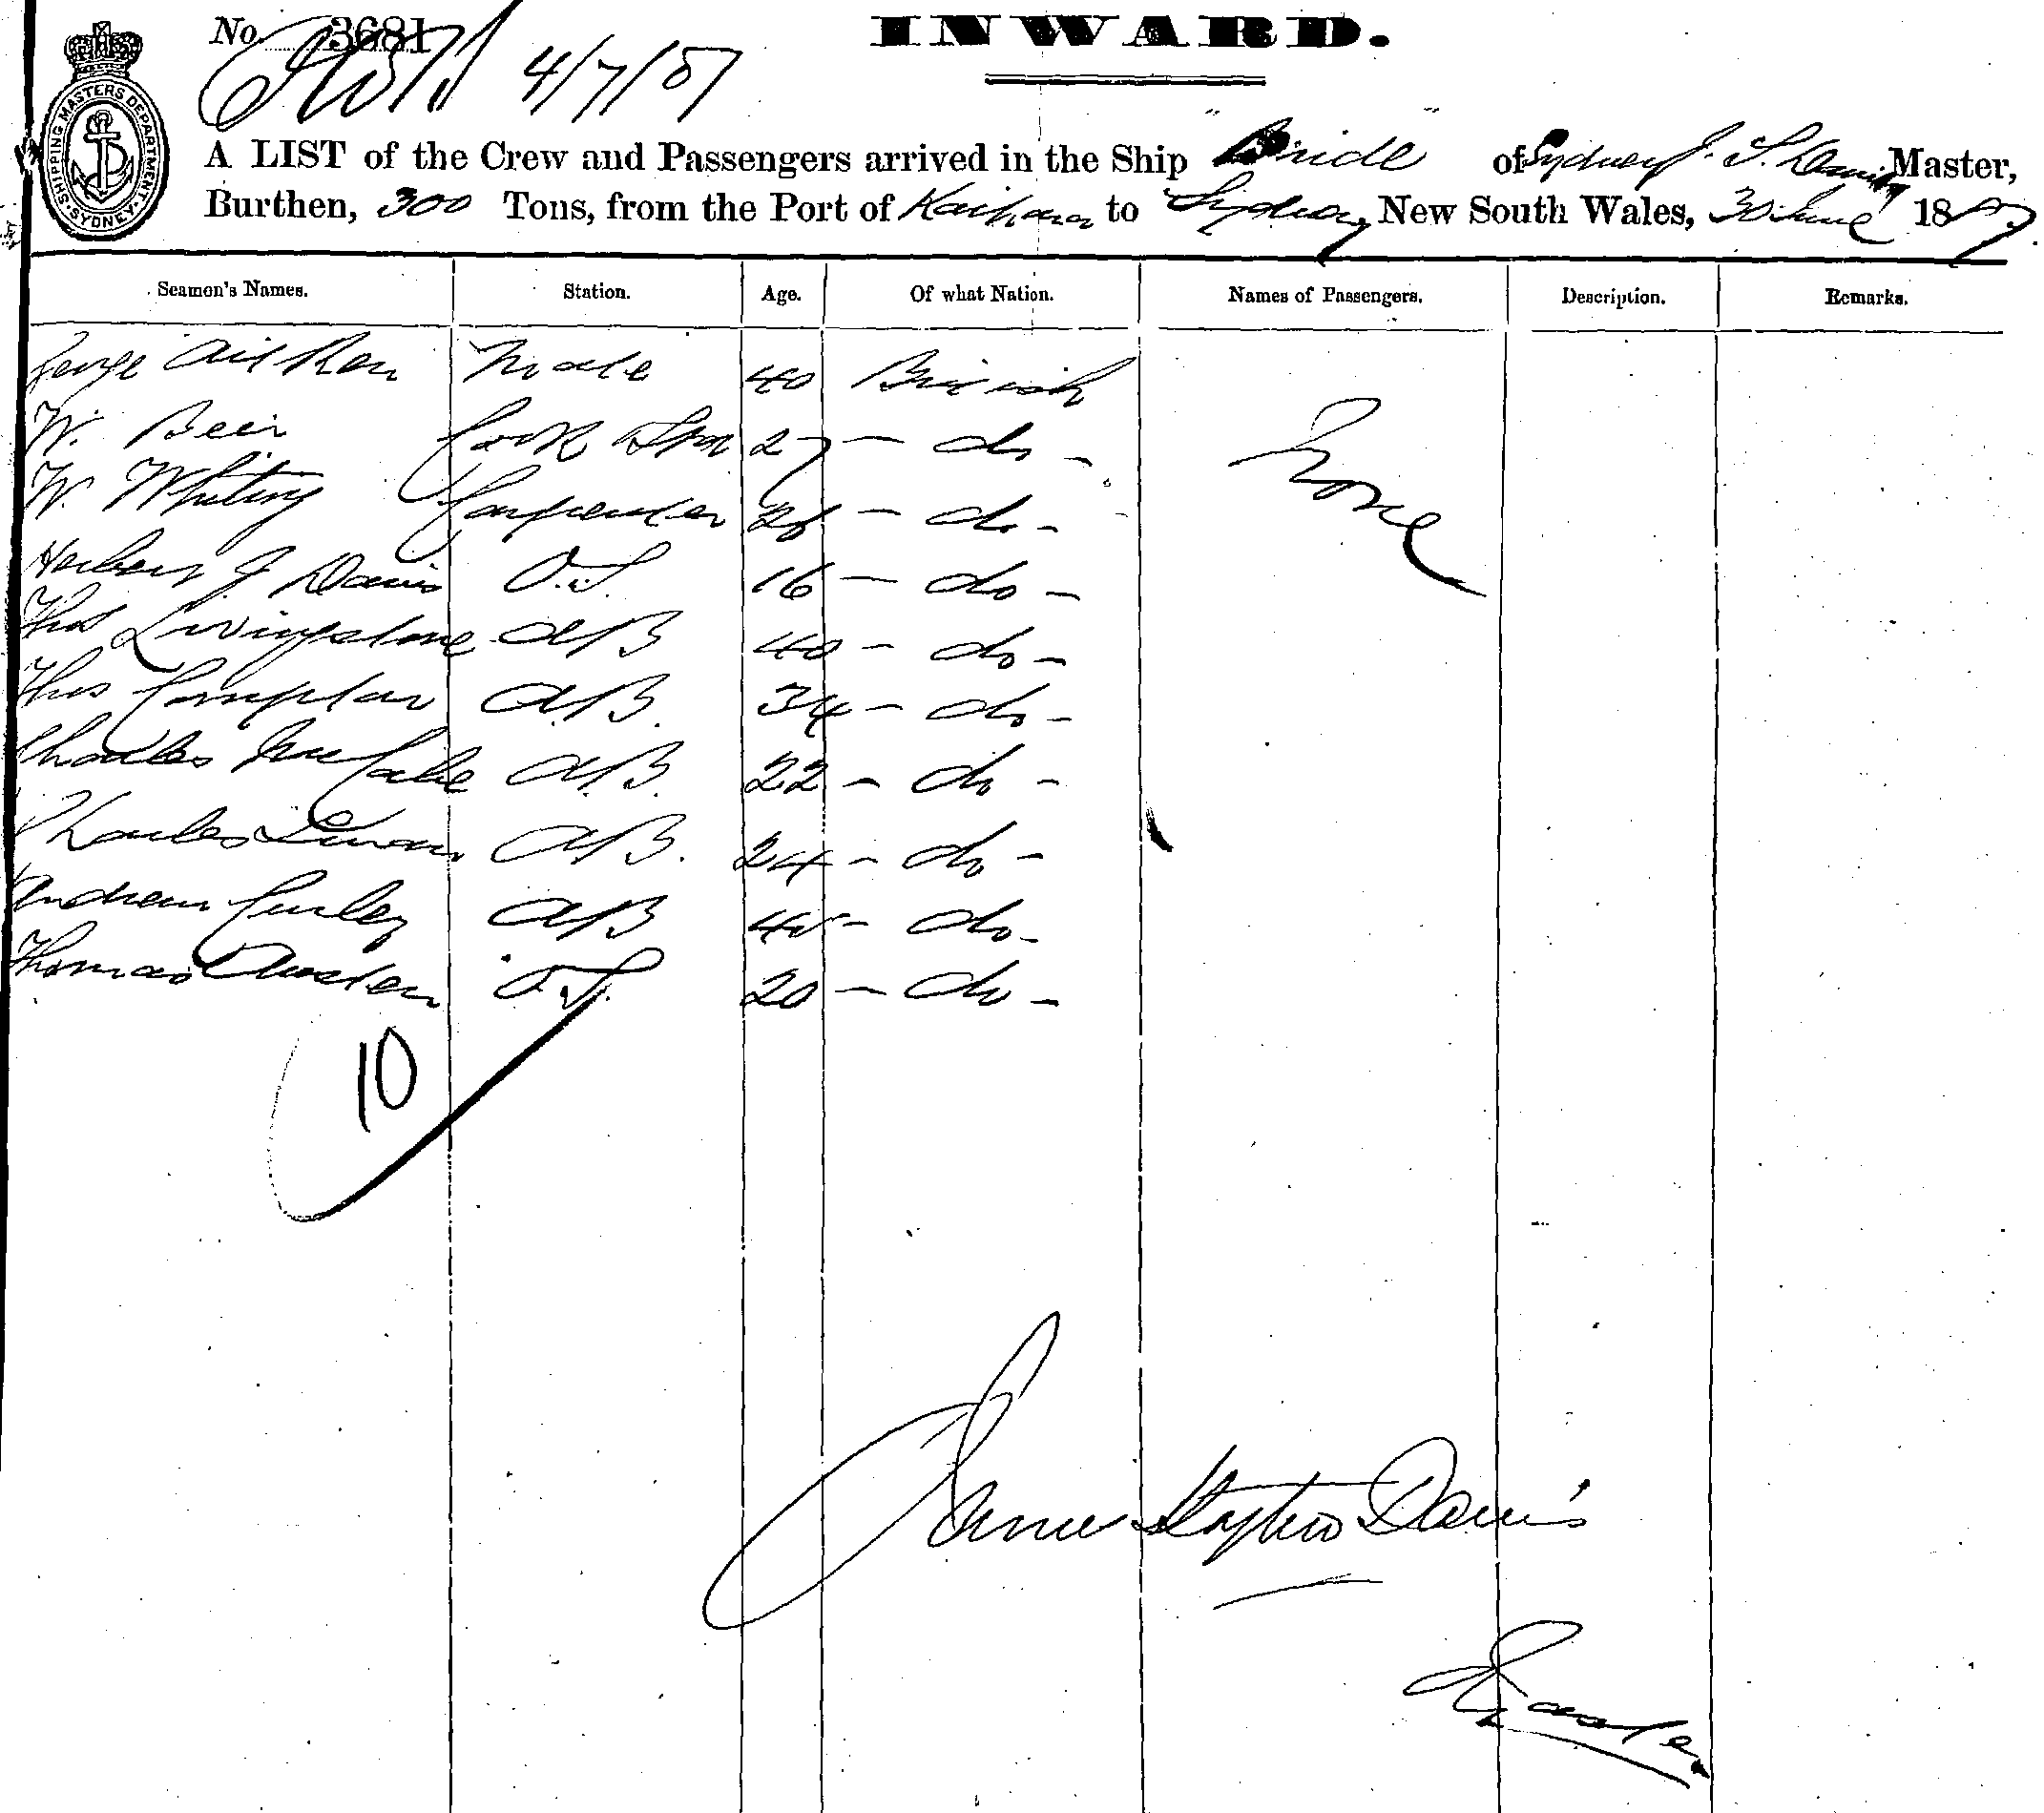 No. 3681
INWARD.
4/7/87
SHIPPING MASTERS DEPARTMENT. SYDNEY.
A LIST of the Crew and Passengers arrived in the Ship "Bride" of Sydney J. S. Davis Master,
Burthen, 300 Tons, from the Port of Kaipara to Sydney New South Wales, 30 June 1887.
Seamen's Names. Station. Age. Of what Nation. Names of Passengers. Description. Remarks.
George Aitken Mate 40 British
W. Beir Cook & Std 27 - do - None
W. Whiting Carpenter 26 - do -
Herbert J Davis O.S. 16 - do -
Thos Livingstone AB 40 - do -
Thos Compton A.B. 34 - do -
Charles McCabe A.B. 22 - do -
Charles Swan AB. 24 - do -
Andrew Curley AB - do -
Thomas Austen O.S. 20 - do -
10
James Stephen Davis
Master